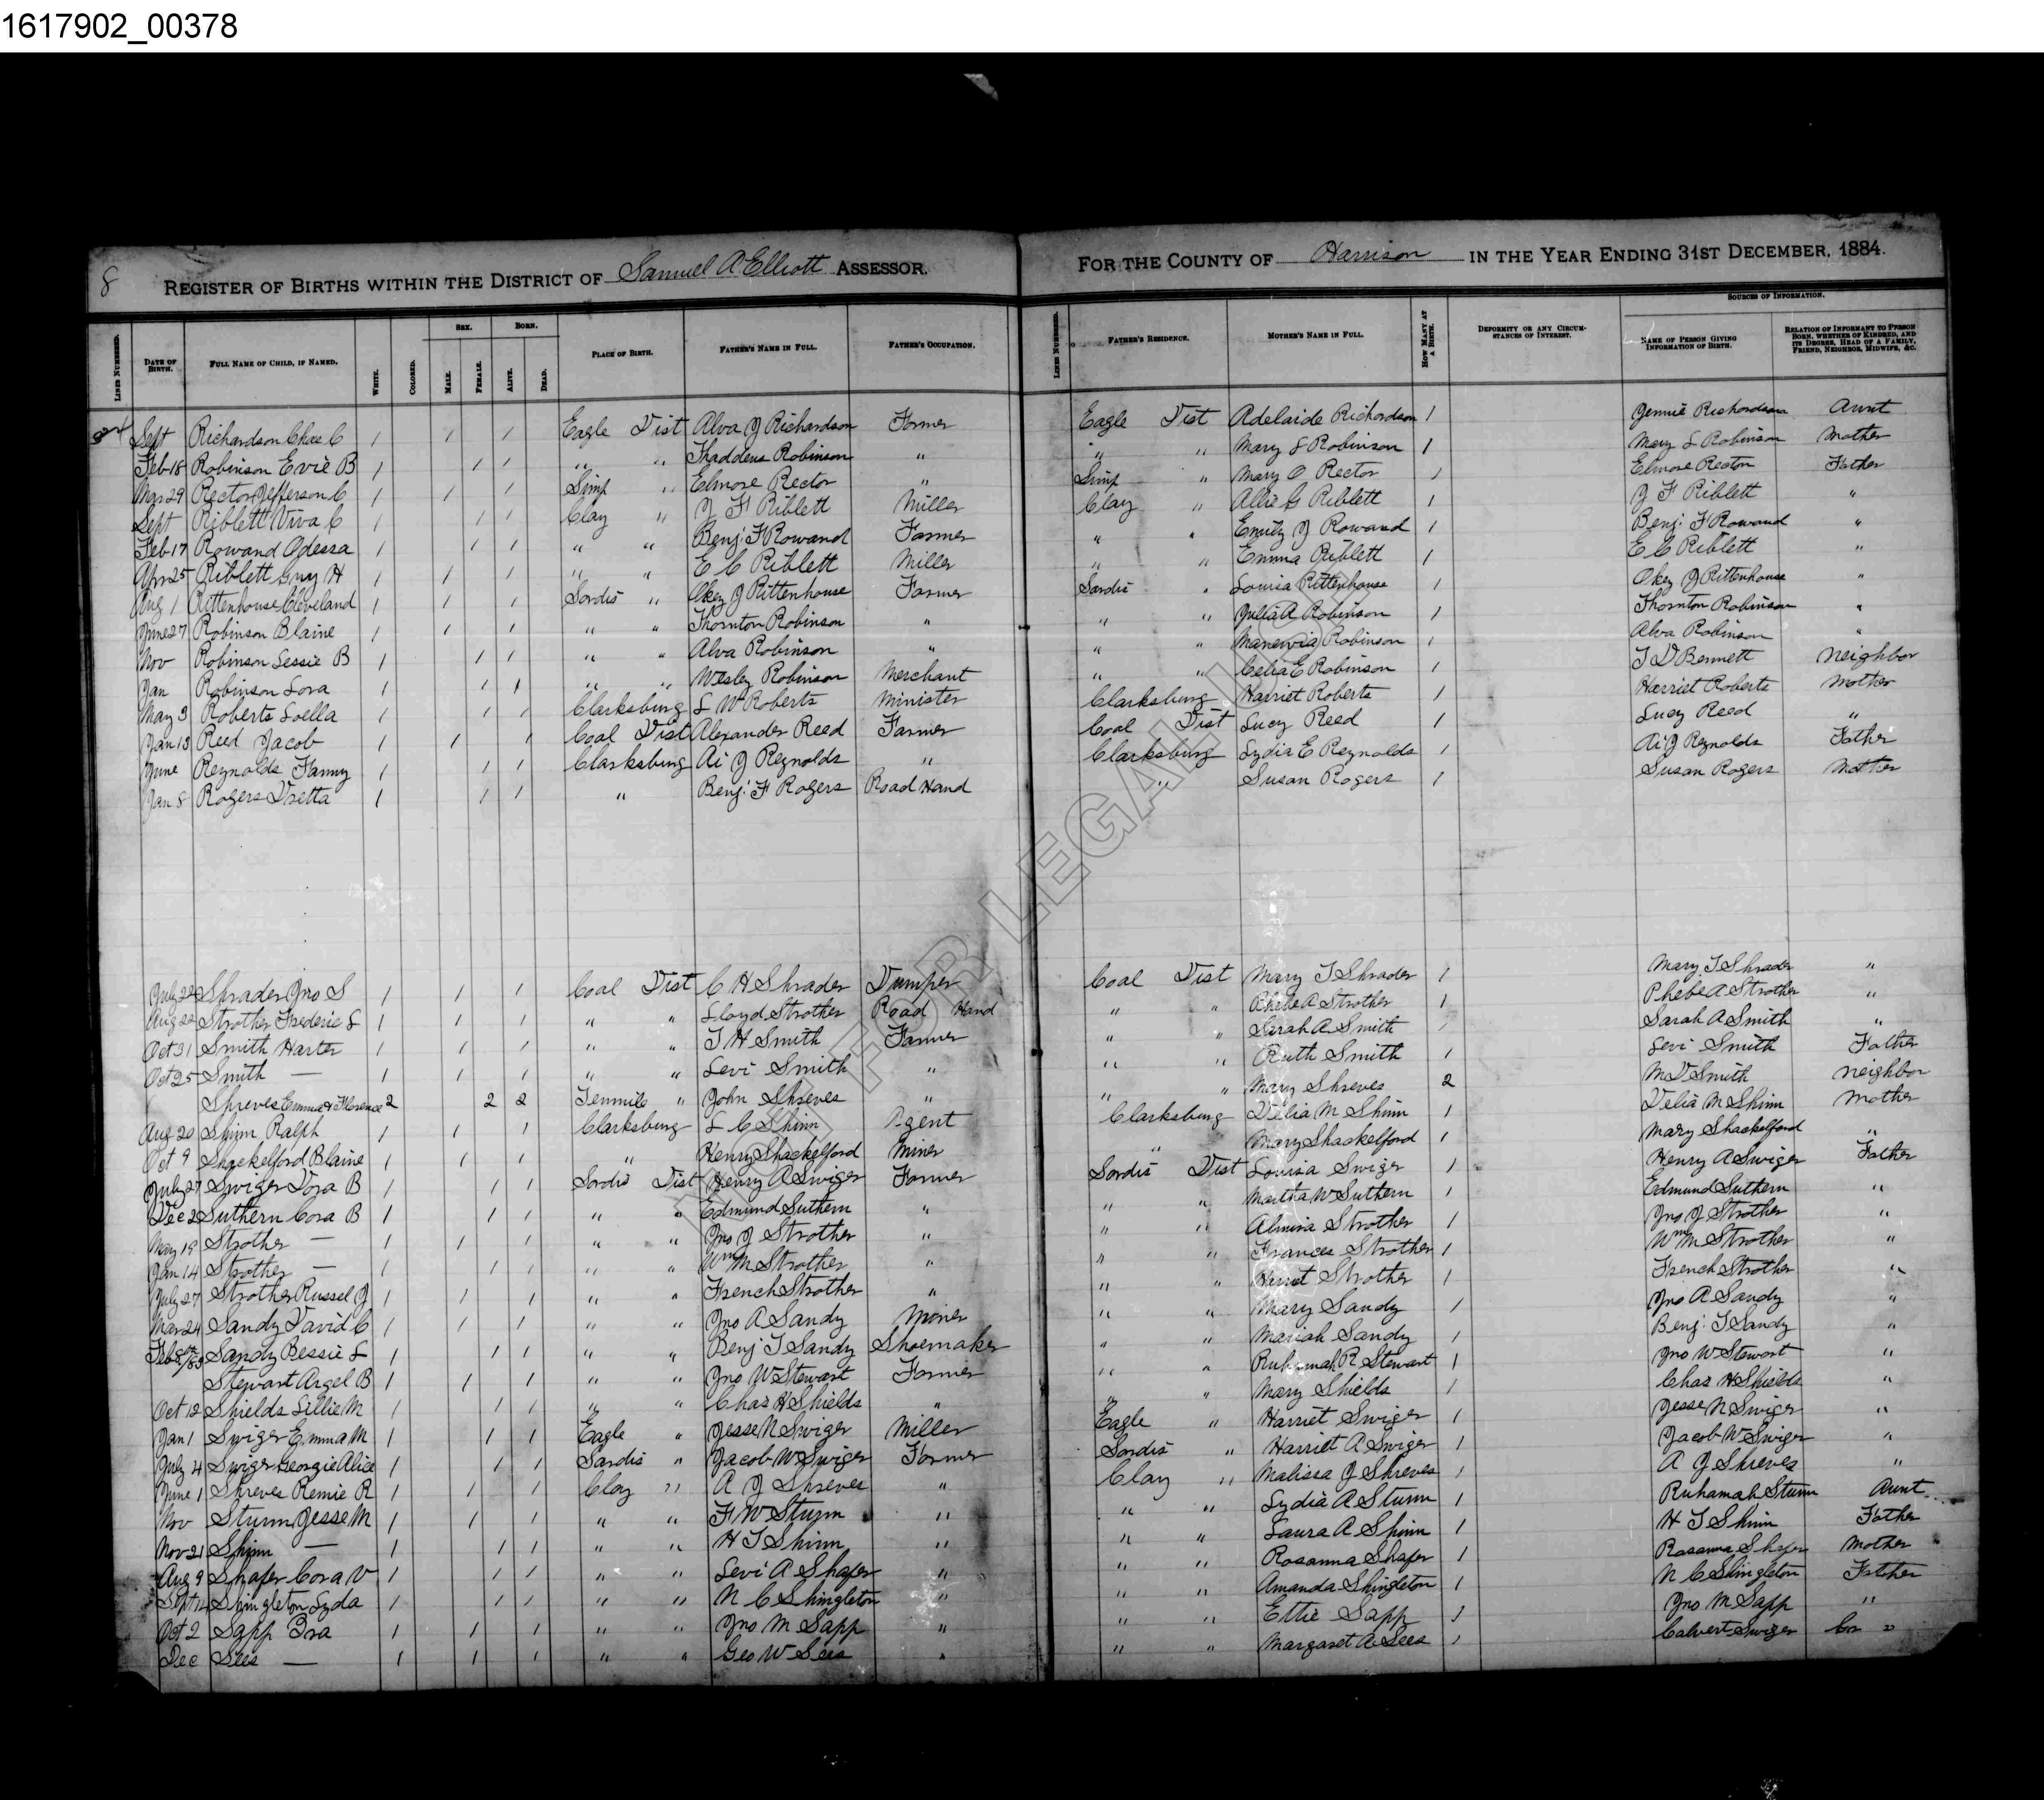 1617902_00378
8 REGISTER OF BIRTHS WITHIN THE DISTRICT OF Samuel A Elliott ASSESSOR. FOR THE COUNTY OF Harrison IN THE YEAR ENDING 31ST DECEMBER, 1884.
SEX. BORN. SOURCES OF INFORMATION.
LINES NUMBERED. DATE OF BIRTH. FULL NAME OF CHILD, IF NAMED. WHITE. COLORED. MALE. FEMALE. ALIVE. DEAD. PLACE OF BIRTH. FATHER'S NAME IN FULL. FATHER'S OCCUPATION. LINES NUMBERED. FATHER'S RESIDENCE. MOTHER'S NAME IN FULL. HOW MANY AT A BIRTH. DEFORMITY OR ANY CIRCUMSTANCES OF INTEREST. NAME OF PERSON GIVING INFORMATION OF BIRTH. RELATION OF INFORMANT TO PERSON BORN, WHETHER OF KINDRED, AND ITS DEGREE, HEAD OF A FAMILY, FRIEND, NEIGHBOR, MIDWIFE, &C.
Sept Richardson Chas C 1 1 1 Eagle Dist Alva J Richardson Farmer Eagle Dist Adelaide Richardson 1 Jennie Richardson Aunt
Feb 18 Robinson Evie B 1 1 1 " " Thaddeus Robinson " " " Mary L Robinson 1 Mary L Robinson Mother
Mar 29 Rector Jefferson C 1 1 1 Simp " Elmore Rector " Simp " Mary O Rector 1 Elmore Rector Father
Sept Riblett Viva C 1 1 1 Clay " J F Riblett Miller Clay " Allie G Riblett 1 J F Riblett "
Feb 17 Rowand Odessa 1 1 1 " " Benj. F Rowand Farmer " " Emily J Rowand 1 Benj. F Rowand "
Apr 25 Riblett Guy H 1 1 1 " " E C Riblett Miller " " Emma Riblett 1 E C Riblett "
Aug 1 Rittenhouse Cleveland 1 1 1 Sardis " Okey J Rittenhouse Farmer Sardis " Louisa Rittenhouse 1 Okey J Rittenhouse "
June 27 Robinson Blaine 1 1 1 " " Thornton Robinson " " " Julia A Robinson 1 Thornton Robinson "
Nov Robinson Lessie B 1 1 1 " " Alva Robinson " " " Robinson 1 Alva Robinson "
Jan Robinson Lora 1 1 1 " " Wesley Robinson Merchant " " Celia E Robinson 1 T D Bennett Neighbor
May 3 Roberts Loella 1 1 1 Clarksburg L W Roberts Minister Clarksburg Harriet Roberts 1 Harriet Roberts Mother
Jan 13 Reed Jacob 1 1 1 Coal Dist Alexander Reed Farmer Coal Dist Lucy Reed 1 Lucy Reed "
June Reynolds Fanny 1 1 1 Clarksburg Ai J Reynolds " Clarksburg Lydia E Reynolds 1 Ai J Reynolds Father
Jan 8 Rogers Vretta 1 1 1 " Benj. F Rogers Road Hand " Susan Rogers 1 Susan Rogers Mother
July 22 Shrader Jno S 1 1 1 Coal Dist C H Shrader Dumper Coal Dist Mary T Shrader 1 Mary T Shrader "
Aug 22 Strother Frederic L 1 1 1 " " Lloyd Strother Road Hand " " Phebe A Strother 1 Phebe A Strother "
Oct 31 Smith Harter 1 1 1 " " T H Smith Farmer " " Sarah A Smith 1 Sarah A Smith "
Oct 25 Smith — 1 1 1 " " Levi Smith " " " Ruth Smith 1 Levi Smith Father
Shreves Emma & Florence 2 2 2 Tenmile " John Shreves " " " Mary Shreves 2 M D Smith Neighbor
Aug 20 Shinn Ralph 1 1 1 Clarksburg L C Shinn Agent Clarksburg Delia M Shinn 1 Delia M Shinn Mother
Oct 9 Shackelford Blaine 1 1 1 " Henry Shackelford Miner " Mary Shackelford 1 Mary Shackelford "
July 27 Swiger Dora B 1 1 1 Sardis Dist Henry A Swiger Farmer Sardis Dist Louisa Swiger 1 Henry A Swiger Father
Dec 2 Suthern Cora B 1 1 1 " " Edmund Suthern " " " Martha W Suthern 1 Edmund Suthern "
May 19 Strother — 1 1 1 " " Jno J Strother " " " Almira Strother 1 Jno J Strother "
Jan 14 Strother — 1 1 1 " " Wm M Strother " " " Frances Strother 1 Wm M Strother "
July 27 Strother Russel J 1 1 1 " " French Strother " " " Strother 1 French Strother "
Mar 24 Sandy David C 1 1 1 " " Jno A Sandy Miner " " Mary Sandy 1 Jno A Sandy "
Feb 8th/83 Sandy Bessie L 1 1 1 " " Benj T Sandy Shoemaker " " Mariah Sandy 1 Benj. T Sandy "
Stewart Argel B 1 1 1 " " Jno W Stewart Farmer " " Ruhamah R Stewart 1 Jno W Stewart "
Oct 12 Shields Lillie M 1 1 1 " " Chas H Shields " " " Mary Shields 1 Chas H Shields "
Jan 1 Swiger Emma M 1 1 1 Eagle " Jesse N Swiger Miller Eagle " Harriet Swiger 1 Jesse N Swiger "
July 4 Swiger Georgie Alice 1 1 1 Sardis " Jacob W Swiger Farmer Sardis " Harriet A Swiger 1 Jacob W Swiger "
June 1 Shreves Remie R 1 1 1 Clay " A J Shreves " Clay " Malissa J Shreves 1 A J Shreves "
Nov Sturm Jesse M 1 1 1 " " F W Sturm " " " Lydia A Sturm 1 Ruhamah Sturm Aunt
Nov 21 Shinn — 1 1 1 " " H T Shinn " " " Laura A Shinn 1 H T Shinn Father
Aug 9 Shafer Cora V 1 1 1 " " Levi A Shafer " " " Rosanna Shafer 1 Rosanna Shafer Mother
Sept 14 Shingleton Lyda 1 1 1 " " N C Shingleton " " " Amanda Shingleton 1 N C Shingleton Father
Oct 2 Sapp Ira 1 1 1 " " Jno M Sapp " " " Ettie Sapp 1 Jno M Sapp "
Dec Sees — 1 1 1 " " Geo W Sees " " " Margaret A Sees 1 Calvert Swiger "
NOT FOR LEGAL USE